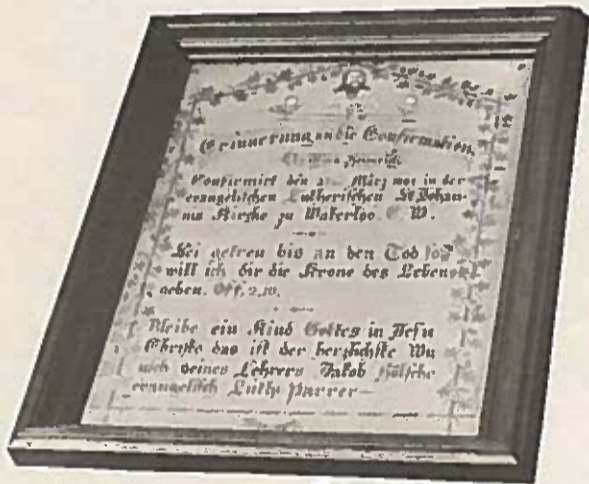 Erinnerung an die Confirmation.
Heinrich
Confirmirt den März in der
evangelischen Lutherischen St Johan-
nis Kirche zu Waterloo C. W.
Sei getreu bis an den Tod so
will ich dir die Krone des Lebens
geben. Off. 2,10.
Bleibe ein Kind Gottes in Jesu
Christo das ist der herzlichste Wu
nsch deines Lehrers Jakob
evangelisch Luth. Parrer